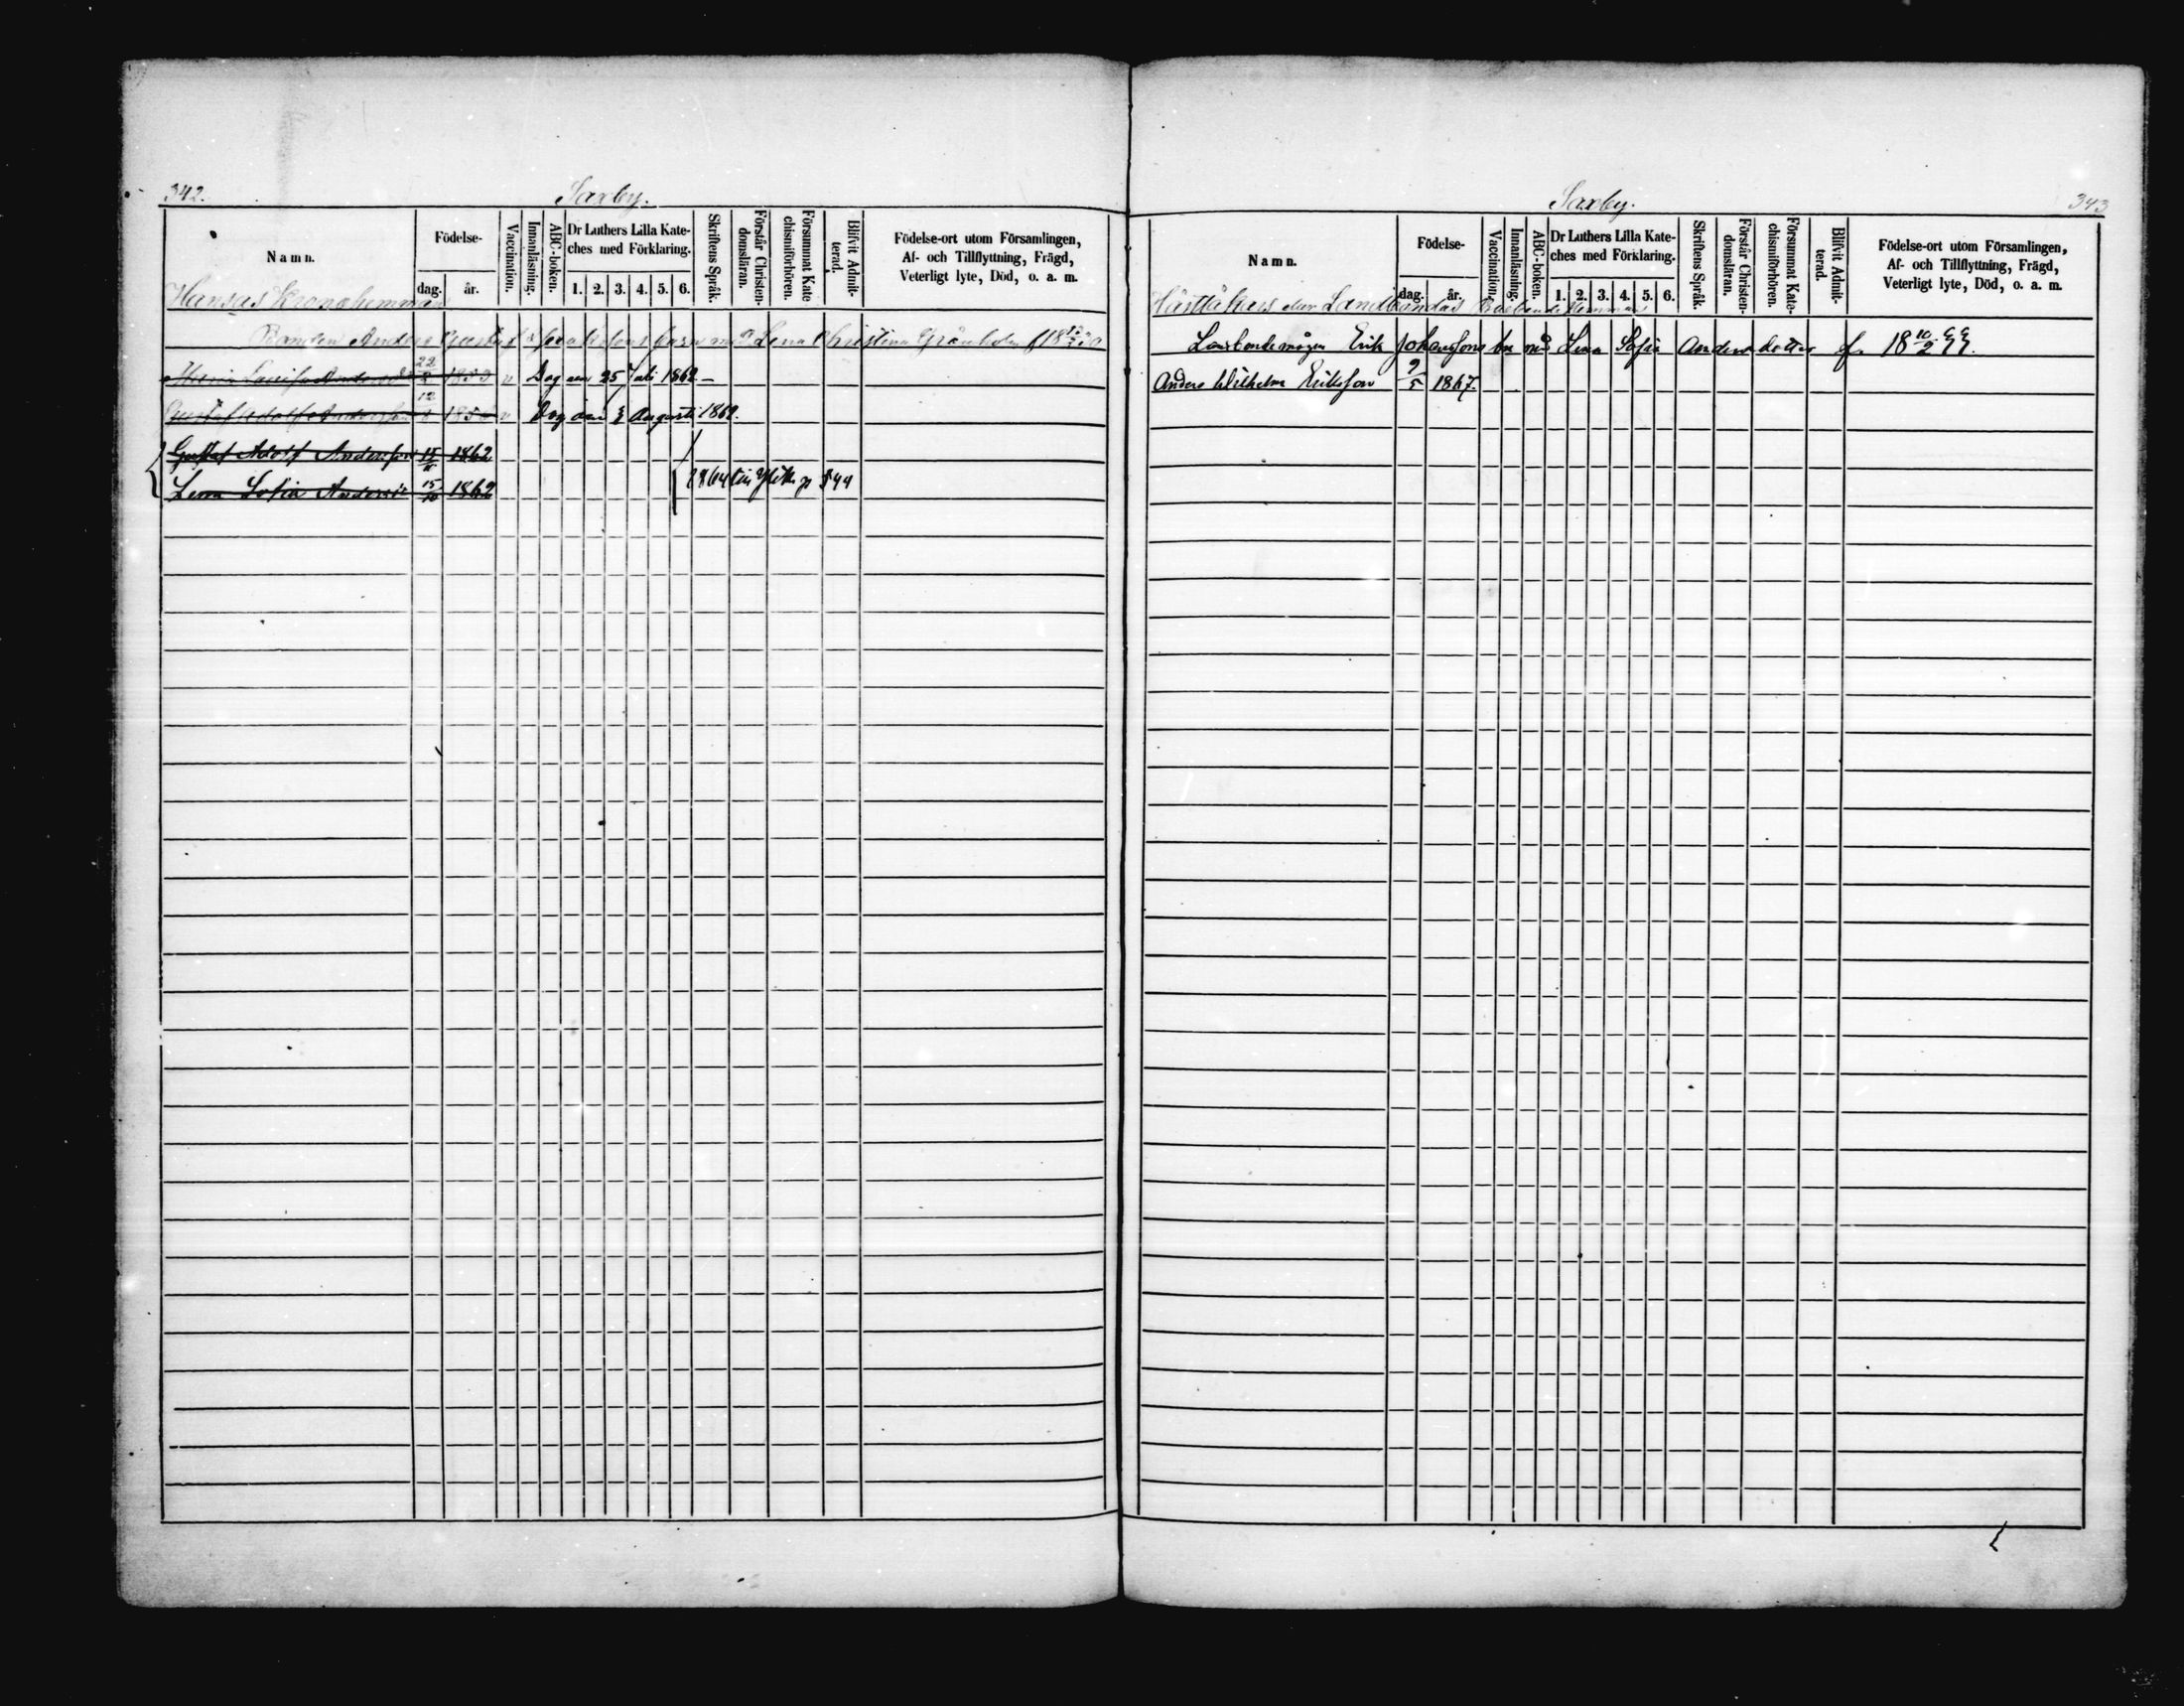 342.
Saxby.
Namn.
Födelse-
dag.
år.
Vaccination.
Innanläsning.
ABC-boken.
Dr Luthers Lilla Kate-
ches med Förklaring.
1. 2. 3. 4. 5. 6.
Skriftens Språk.
Förstår Christen-
domsläran.
Försummat Kate
chismiförhören.
Blifvit Admit-
terad.
Födelse-ort utom Församlingen,
Af- och Tillflyttning, Frägd,
Veterligt lyte, Död, o. a. m.
Hansas Kronohemman
Bonden Anders Gustaf barn med Lena Christina Grönholm f 18
Maria Lovisa 22 1853 v Dog den 25 Juli 1862 –
Gustaf Adolf Andersson 12 v Dog den Augusti 1862.
Gustaf Adolf Andersson 15 1862
Lena Sofia 15/10 1862
1864 544
Saxby.
343
Namn.
Födelse-
dag.
år.
Vaccination.
Innanläsning.
ABC-boken.
Dr Luthers Lilla Kate-
ches med Förklaring.
1. 2. 3. 4. 5. 6.
Skriftens Språk.
Förstår Christen-
domsläran.
Försummat Kate-
chismiförhören.
Blifvit Admit-
terad.
Födelse-ort utom Församlingen,
Af- och Tillflyttning, Frägd,
Veterligt lyte, Död, o. a. m.
eller Landbondas
Erik Johanssons bn med Lena Sofia Andersdotter f. 18 10/2 44.
Anders Wilhelm Eriksson 9/5 1867.